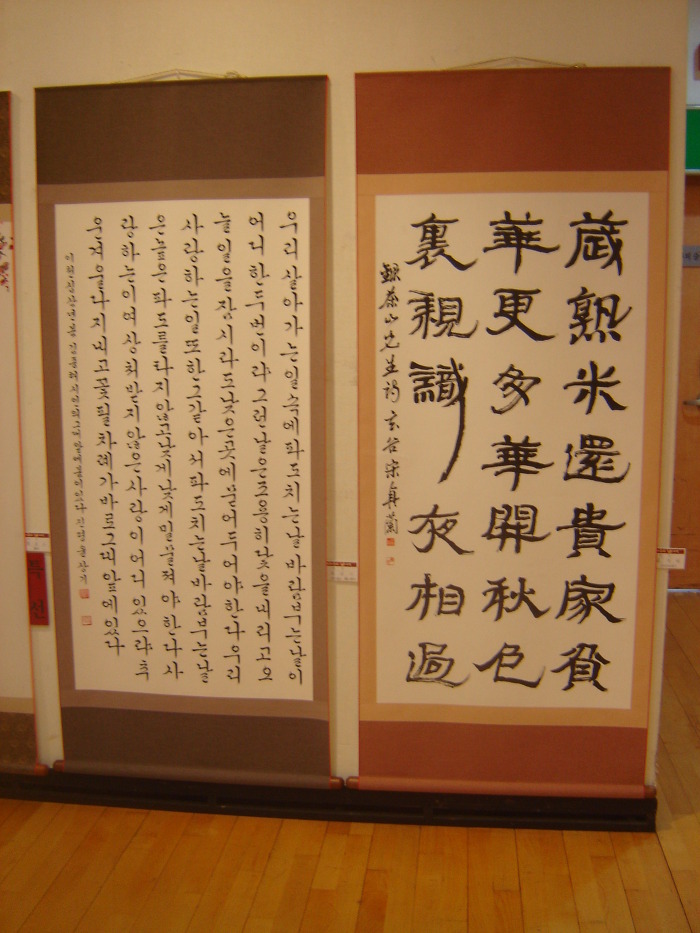 우리 살아가는 일 속에 파도치는 날 바람 부는 날이
어디 한두 번이랴 그런 날은 조용히 닻을 내리고 오
늘 일을 잠시라도 낮은 곳에 묻어두어야 한다 우리
사랑하는 일 또한 그같아서 파도치는 날 바람 부는 날
은 높은 파도를 타지 않고 낮게 낮게 밀물져야 한다 사
랑하는 이여 상처받지 않은 사랑이 어디 있으랴 추
운 겨울 다 지내고 꽃필 차례가 바로 그대 앞에 있다
특선
歲熟米還貴家貧
華更多華開秋色
裏親識夜相過
錄茶山先生詩 玄谷宋貞蘭